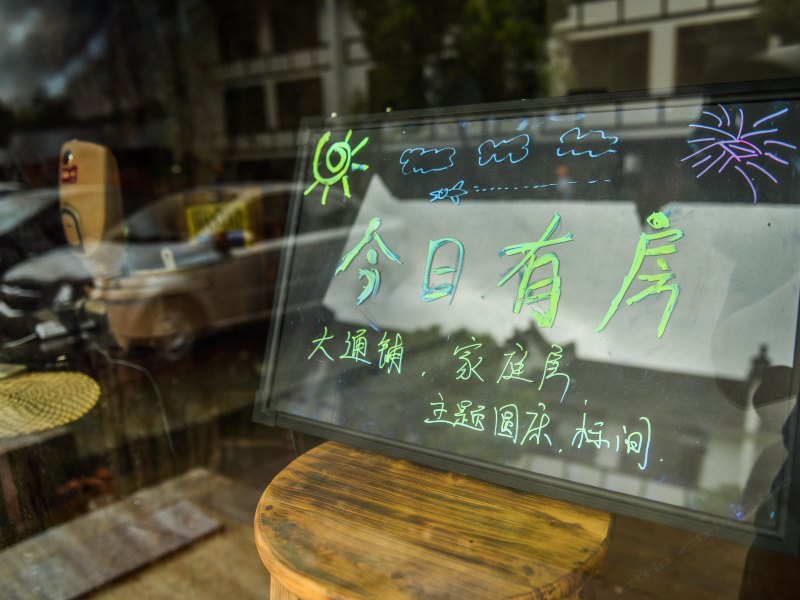 今日有房
大通铺．家庭房
主题圆床．标间．